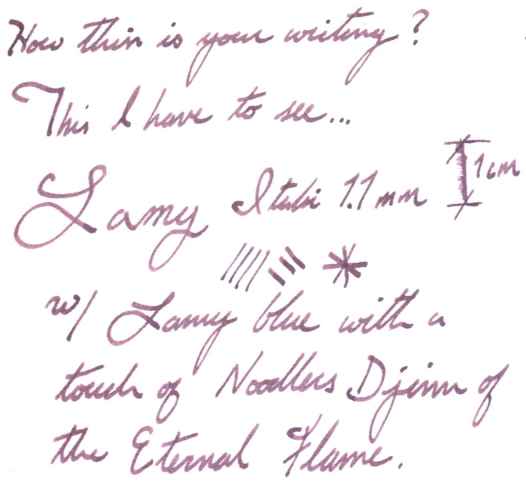 How thin is your writing?
This I have to see...
Lamy Italic 1.1 mm 1cm
w/ Lamy blue with a
touch of Noodlers Djinn of
the Eternal Flame.